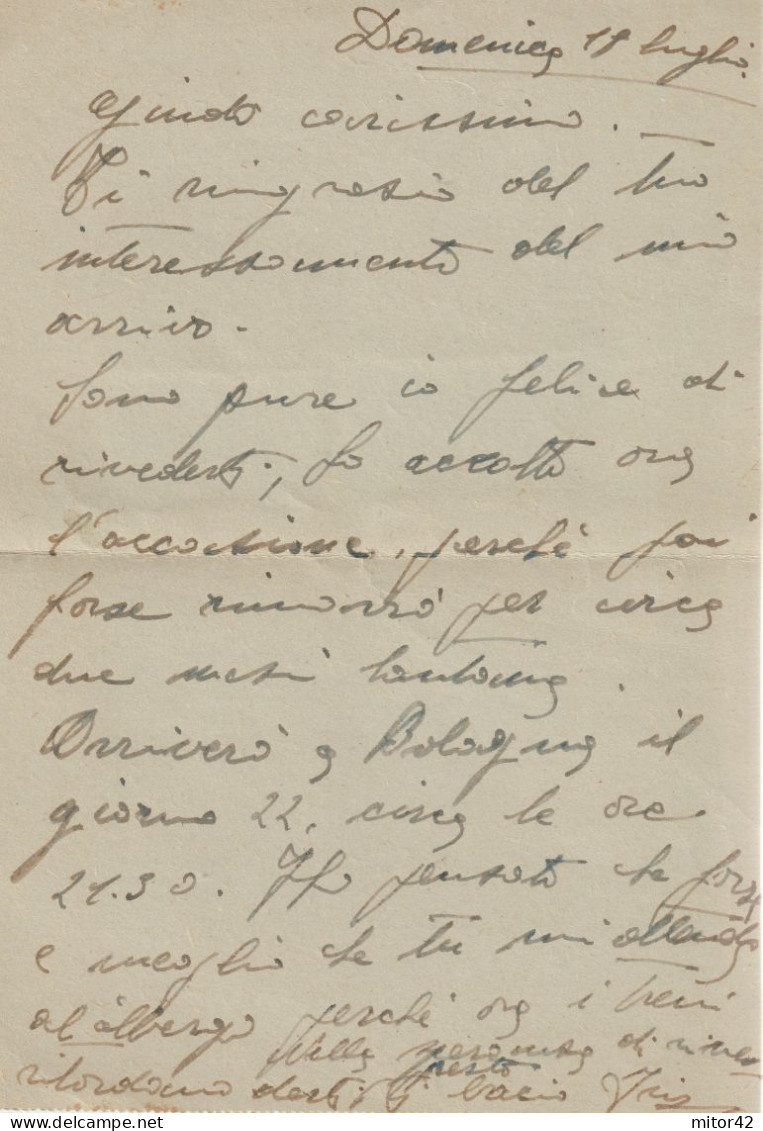 Domenica 18 luglio.
Guido carissimo.
Ti ringrazio del tuo
interessamento del mio
arrivo.
Sono pure io felice di
rivederti, ho accolto ora
l'occasione, perchè poi
forse rimarrò per circa
due mesi lontana.
Arriverò a Bologna il
giorno 22, circa le ore
21.30. Ho pensato che forse
è meglio che tu mi attenda
al albergo perchè ora i treni
ritardano
Nella speranza di rive
derti presto ti bacio Iris
mitor42